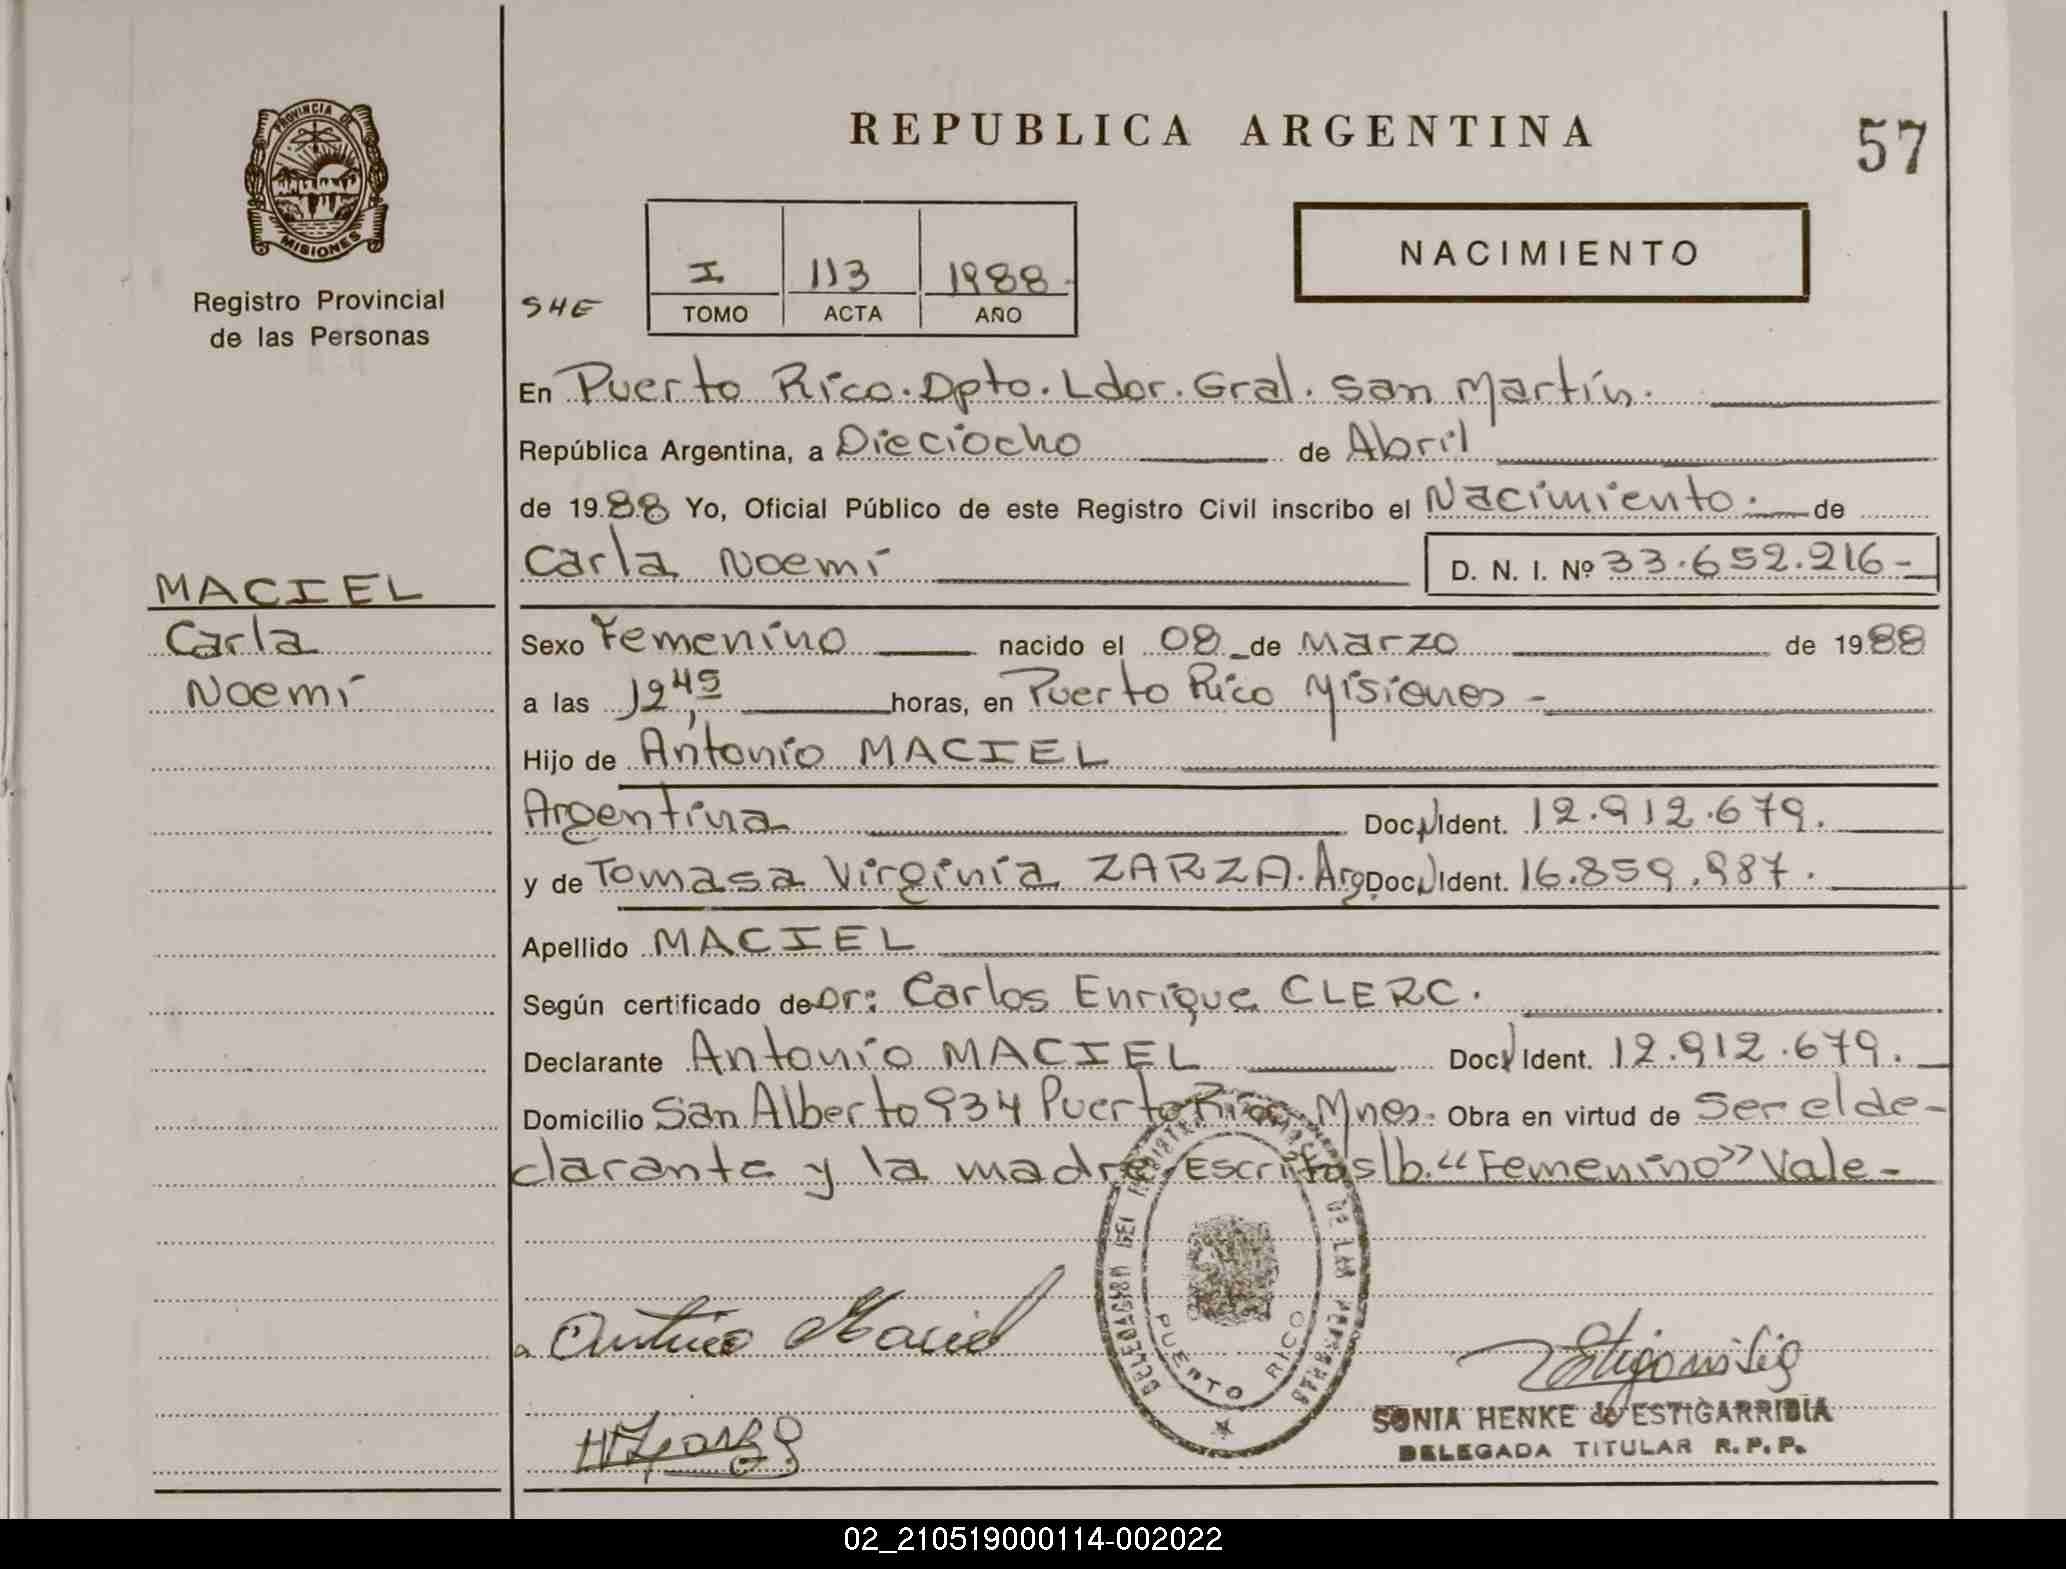 REPUBLICA ARGENTINA
57
PROVINCIA DE
MISIONES
Registro Provincial
de las Personas
SHE
I 113 1988.
TOMO ACTA AÑO
NACIMIENTO
En Puerto Rico. Dpto. Ldor. Gral. San Martín.
República Argentina, a Dieciocho de Abril
de 1988 Yo, Oficial Público de este Registro Civil inscribo el Nacimiento. de
Carla Noemí D. N. I. Nº 33.652.216-
MACIEL
Carla
Noemí
Sexo Femenino nacido el 08 de Marzo de 1988
a las 12,45 horas, en Puerto Rico Misiones-
Hijo de Antonio MACIEL
Argentina Doc. Ident. 12.912.679.
y de Tomasa Virginia ZARZA. Arg. Doc. Ident. 16.859.987.
Apellido MACIEL
Según certificado de Dr: Carlos Enrique CLERC.
Declarante Antonio MACIEL Doc. Ident. 12.912.679.
Domicilio San Alberto 934 Puerto Rico Mnes. Obra en virtud de Ser el de-
clarante y la madre. Escrito s/b. "Femenino" Vale-
DELEGACION DEL REGISTRO PROVINCIAL DE LAS PERSONAS
PUERTO RICO
Antonio Maciel
SONIA HENKE de ESTIGARRIBIA
DELEGADA TITULAR R.P.P.
02_210519000114-002022